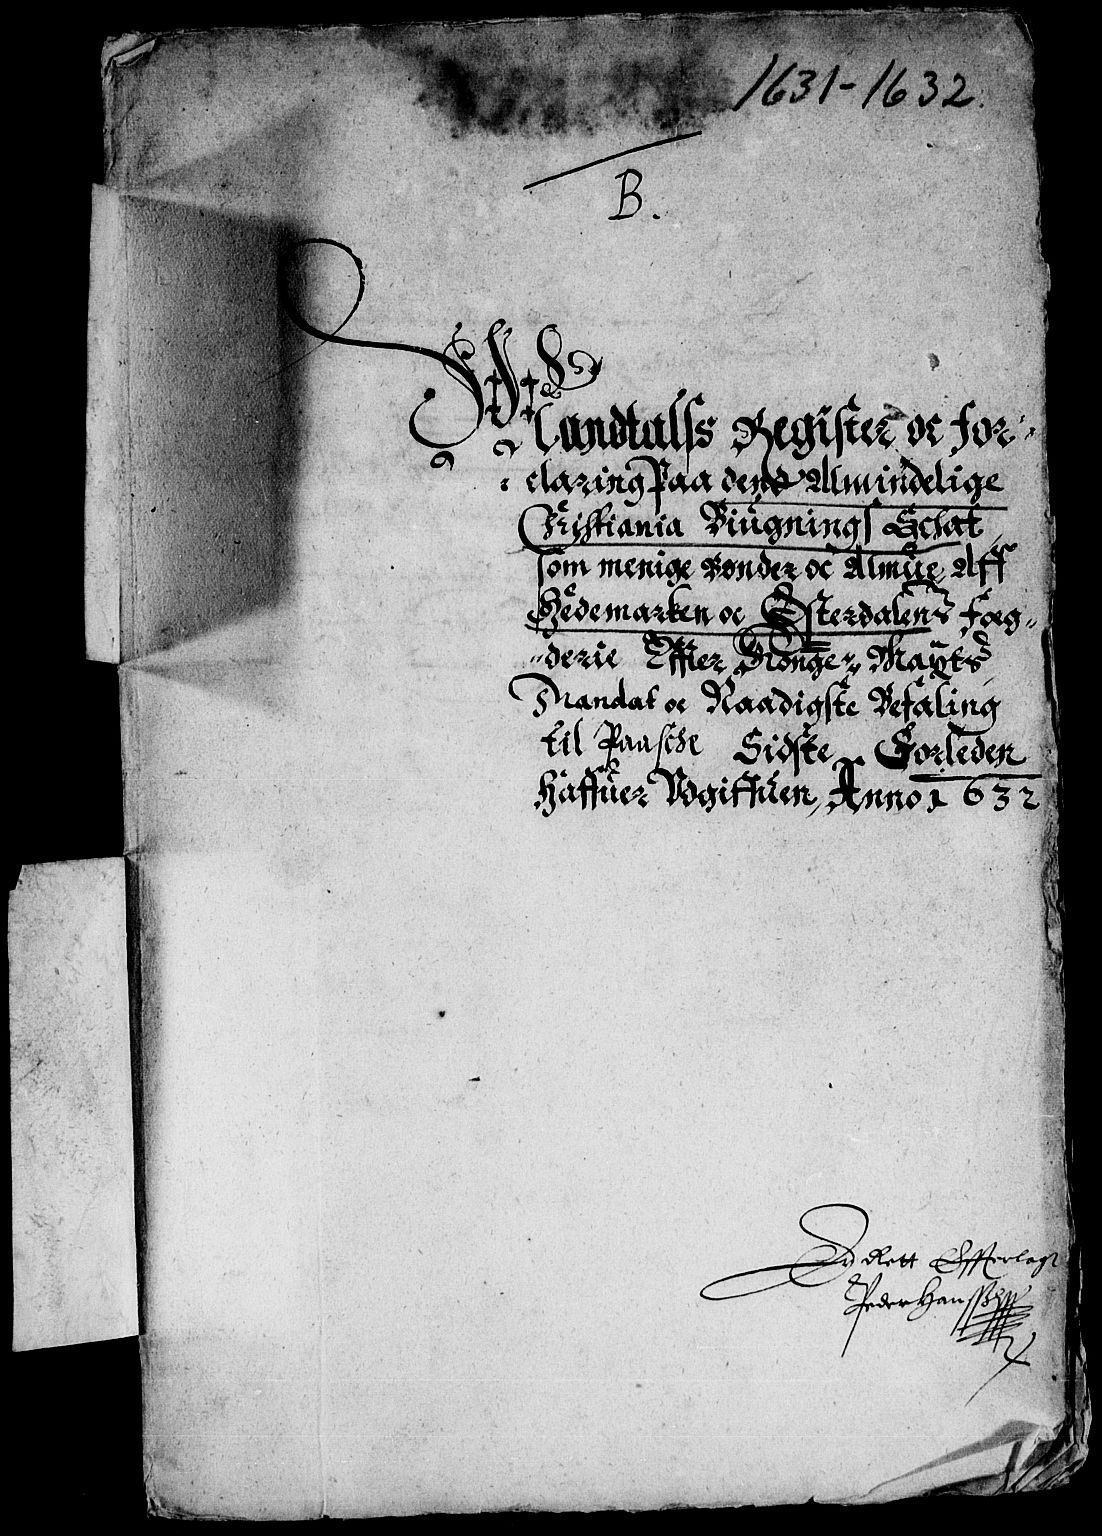 1631-1632.
B.
Mandtalss Register oc for-
claring Paa den Almindelige
Christiania Biugnings Schat,
som menige Bønder oc Almue Aff
Hedemarken oc Østerdalens fog-
derie Effter Konge: Maytz
Mandat oc Naadigste Befaling
til Paasche Sidste Forleden
Haffuer Vdgiffuen, Anno 1632
Rett Efterlagt
Peder Hanssøn